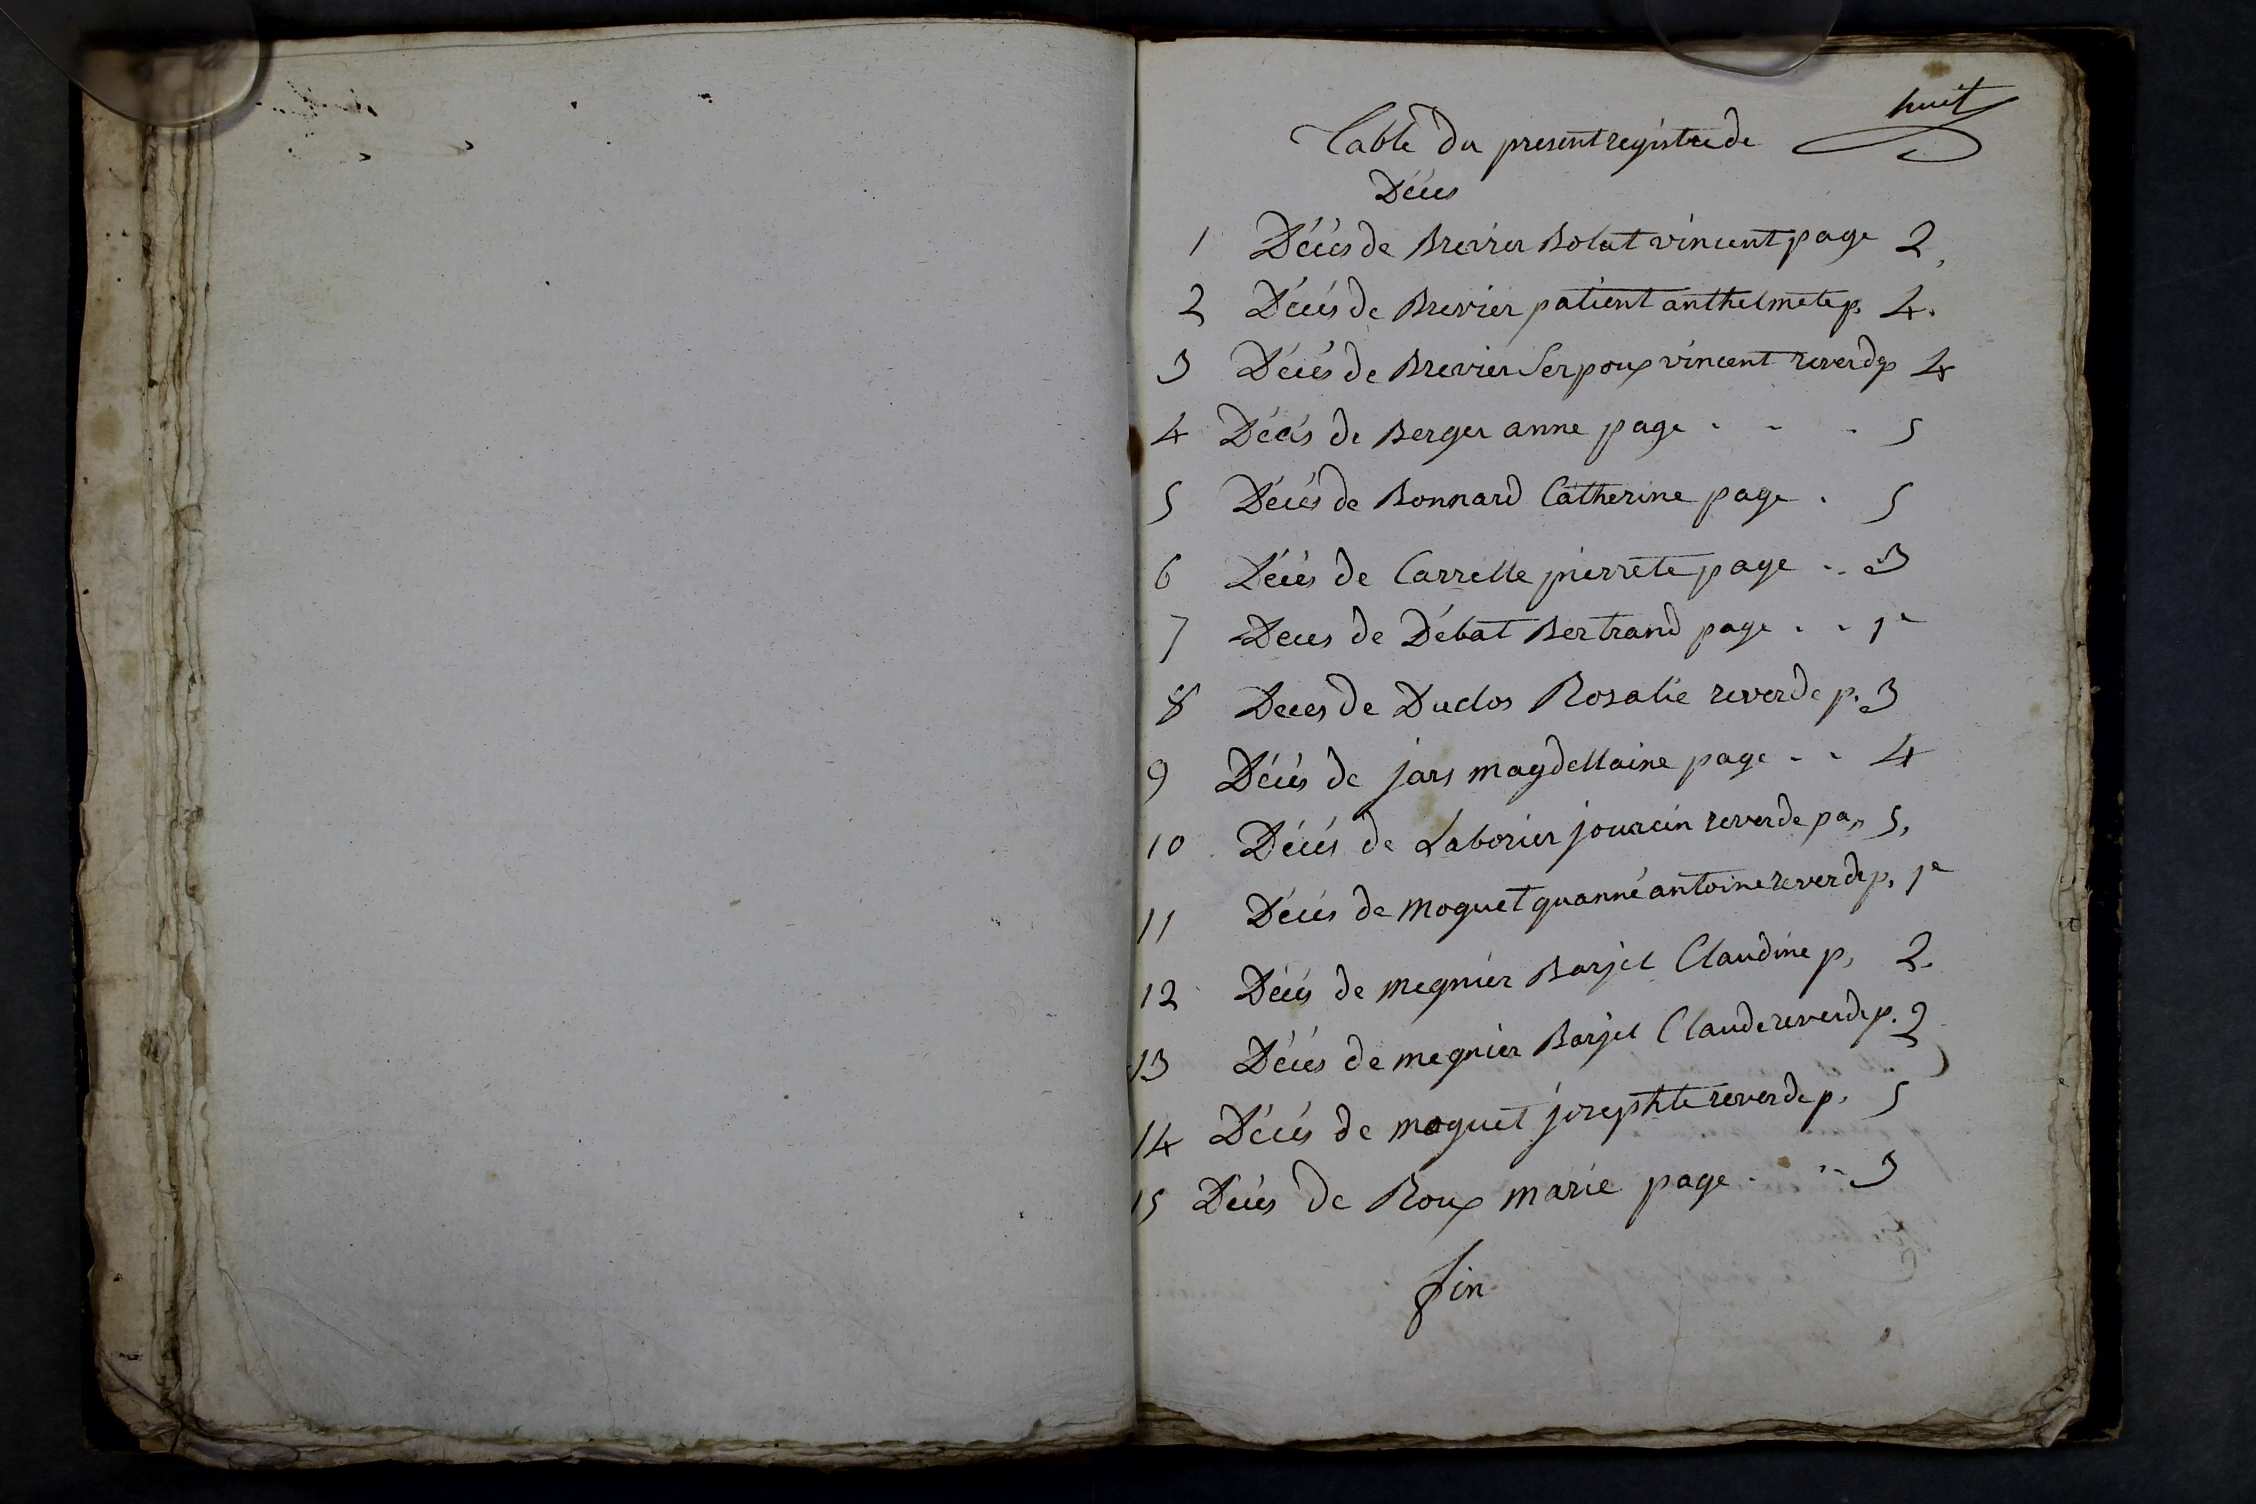 huit
Table du present registre de
Décés
1 Décés de Brevier Bolat vincent page 2,
2 Décés de Brevier patient anthelmete p. 4.
3 Décés de Brevier Serpoux vincent reverd p 4
4 Décés de Berger anne page . . . 5
5 Décés de Bonnard Catherine page . 5
6 Décés de Carrelle pierrete page .. 3
7 Deces de Débat Bertrand page . . 1e
8 Deces de Duclos Rosalie reverde p. 3
9 Décés de jars magdellaine page . . 4
10 Décés de Laborier jourcin reverde pa,, 5,
11 Décés de moguet quanné antoine reverde p, 1e
12 Décés de megnier Barjet Claudine p, 2.
13 Décés de megnier Barjet Claude reverde p. 2
14 Décés de moguet josephte reverde p. 5
15 Décés de Roux marie page . .. 3
fin